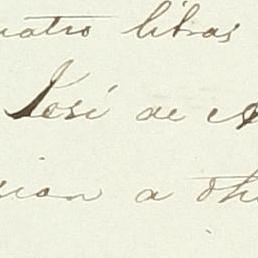 uatro libras
José de A
sion a dh